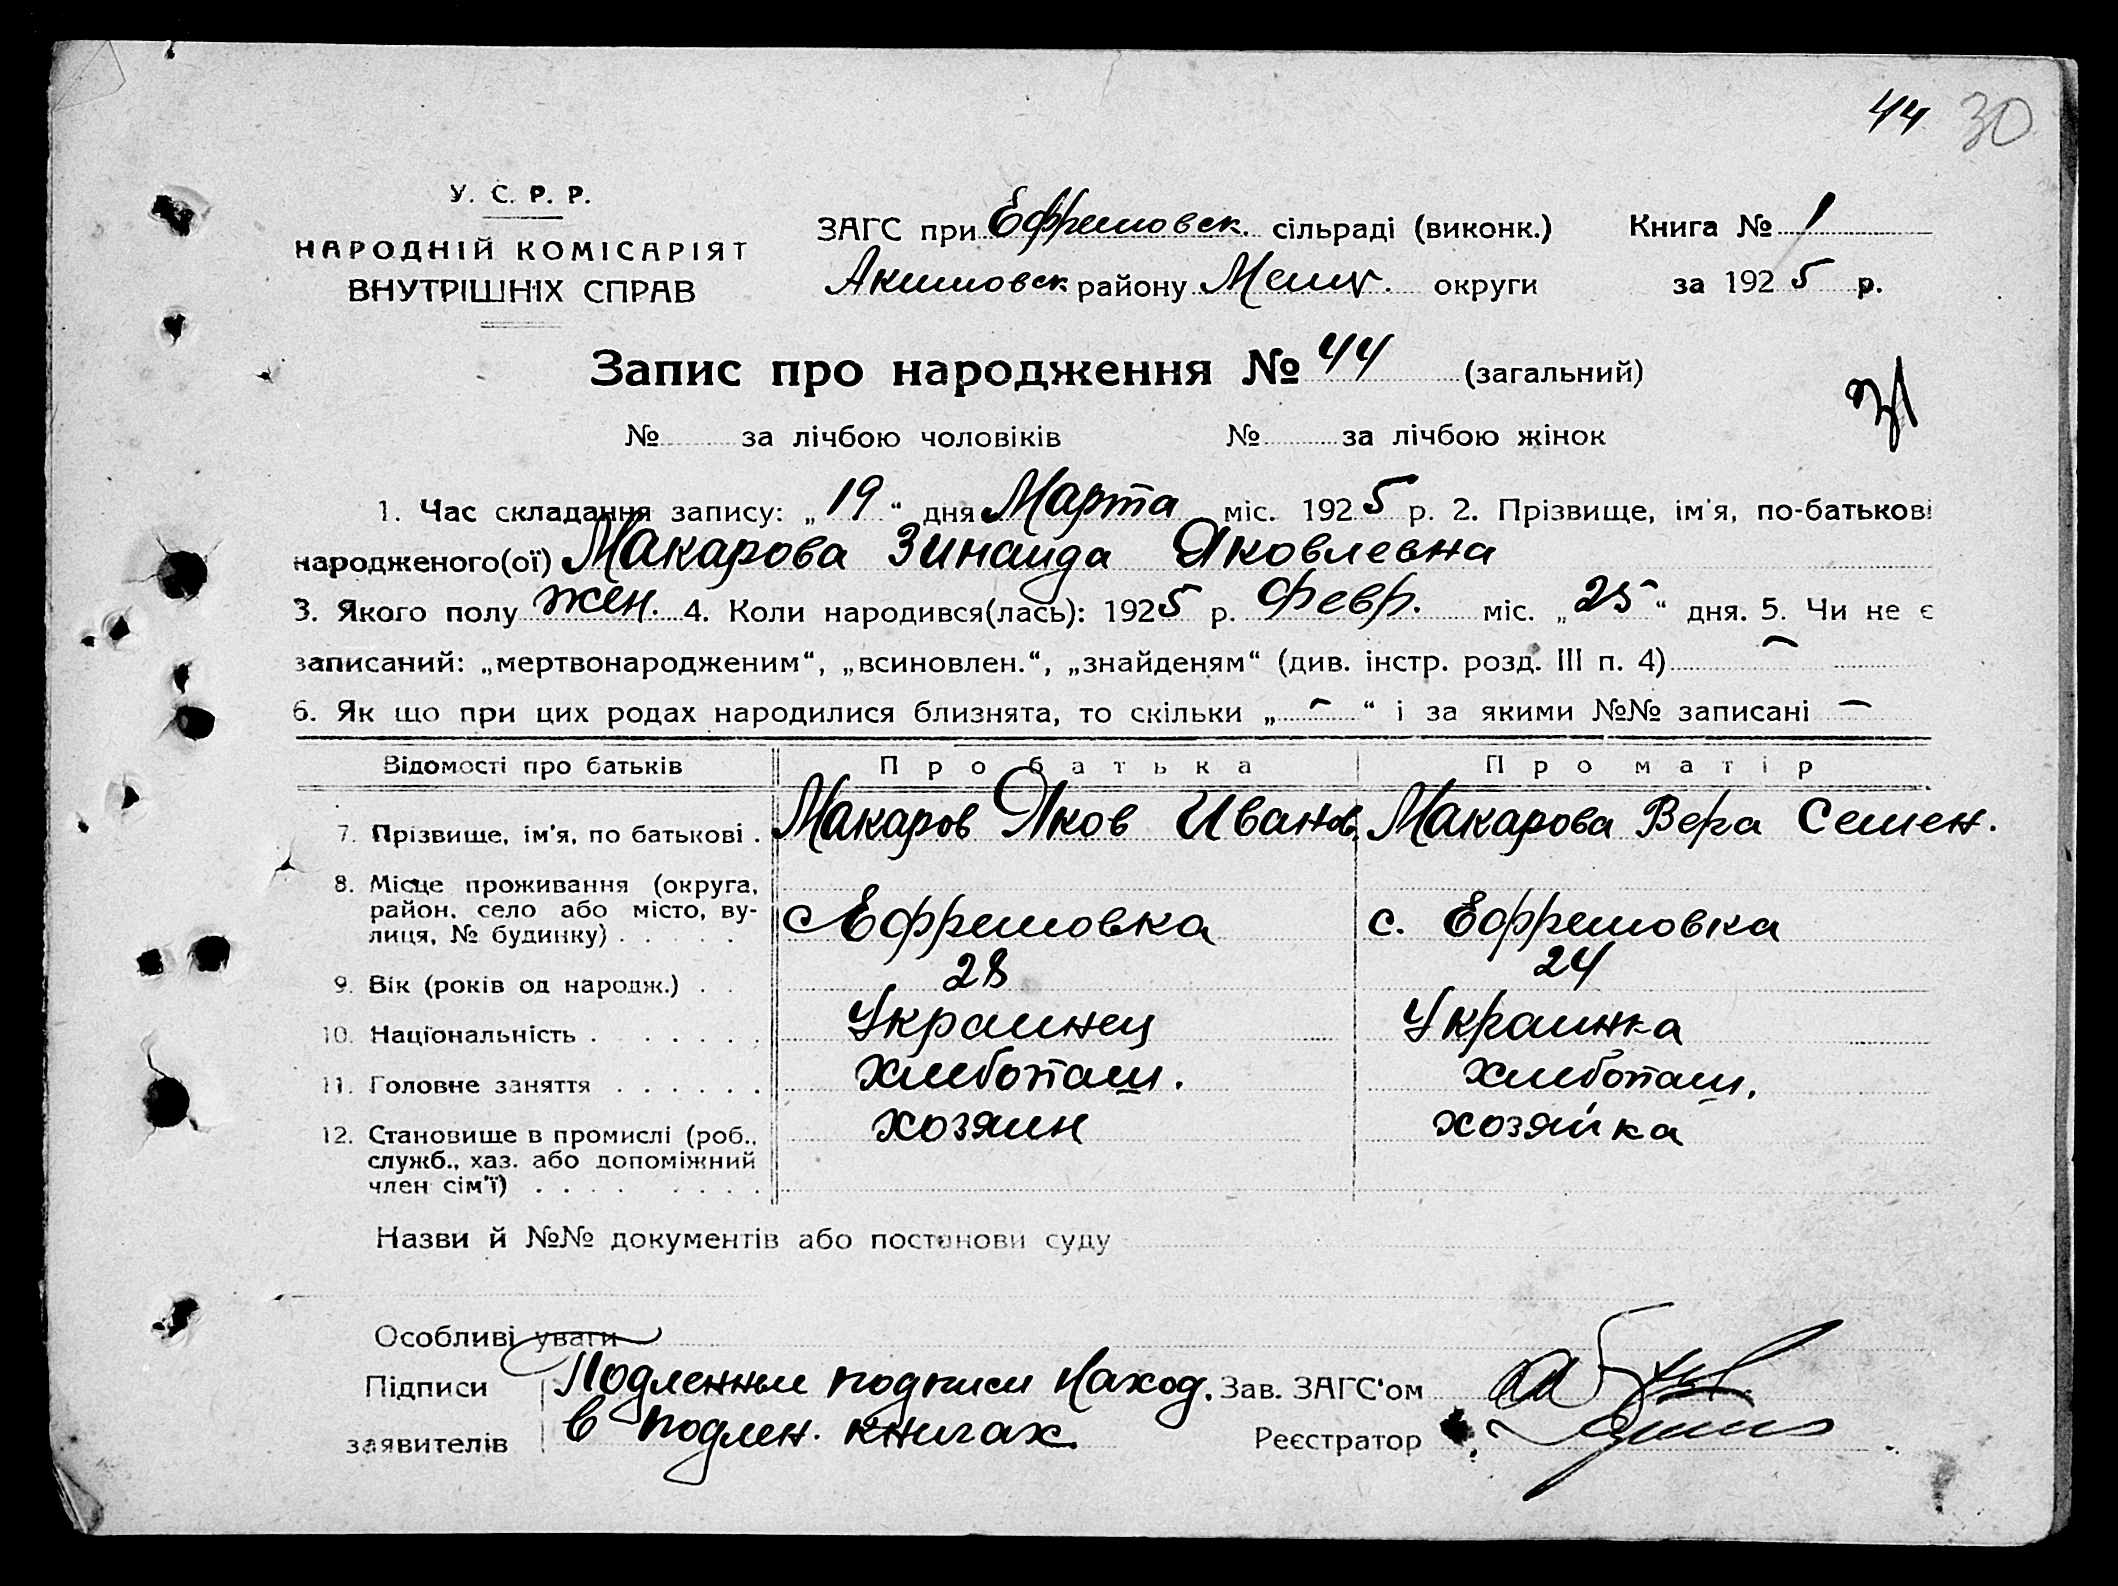 44 30
У. С. Р. Р.
НАРОДНІЙ КОМІСАРІЯТ
ВНУТРІШНІХ СПРАВ
ЗАГС при Ефремовск. сільраді (виконк.) Книга № 1
Акимовск району Мелит. округи за 1925 р.
Запис про народження № 44 (загальний)
31
№ за лічбою чоловіків № за лічбою жінок
1. Час складання запису: „19“ дня Марта міс. 1925 р. 2. Прізвище, ім'я, по-батькові
народженого(ої) Макарова Зинаида Яковлевна
3. Якого полу жен. 4. Коли народився(лась): 1925 р. Февр. міс. „25“ дня. 5. Чи не є
записаний: „мертвонародженим“, „всиновлен.“, „знайденям“ (див. інстр. розд. III п. 4) —
6. Як що при цих родах народилися близнята, то скільки „—“ і за якими №№ записані —
Відомості про батьків Про батька Про матір
7. Прізвище, ім'я, по батькові . Макаров Яков Иванов. Макарова Вера Семен.
8. Місце проживання (округа,
район, село або місто, ву-
лиця, № будинку) . . . . . с Ефремовка с. Ефремовка
9. Вік (років од народж.) . . 28 24
10. Національність . . . . . . . Украинец Украинка
11. Головне заняття . . . . . . хлебопаш. хлебопаш.
12. Становище в промислі (роб., хозяин хозяйка
служб., хаз. або допоміжний
член сім'ї) . . . . . . . .
Назви й №№ документів або постанови суду
Особливі уваги
Підписи Подленные подписи наход. Зав. ЗАГС'ом
заявителів в подлен. книгах. Реєстратор